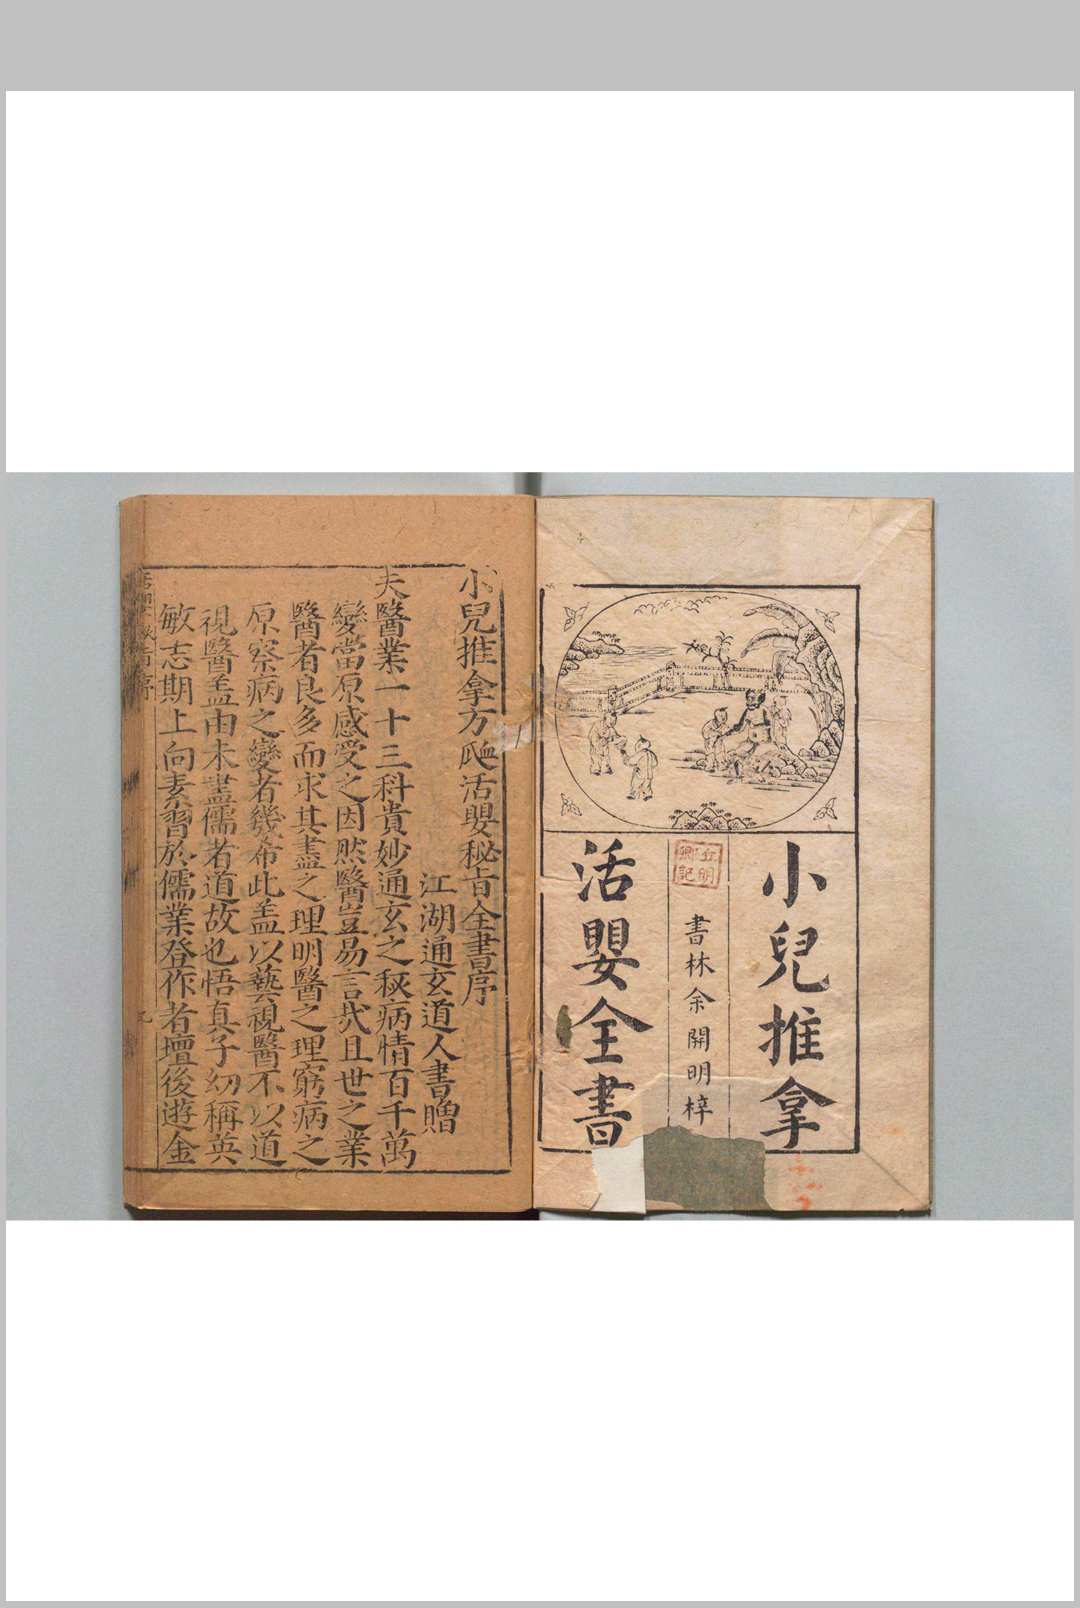 小兒推拿
書林余開明梓
活嬰全書
小兒推拿方脉活嬰秘旨全書序
江湖通玄道人書贈
夫醫業一十三科貴妙通玄之秘病情百千萬
變當原感受之因然醫豈易言哉且世之業
醫者良多而求其盡之理明醫之理窮病之
原察病之變者幾希此盖以藝視醫不以道
視醫盖由未盡儒者道故也悟真子幼稱英
敏志期上向素習於儒業登作者壇後遊金